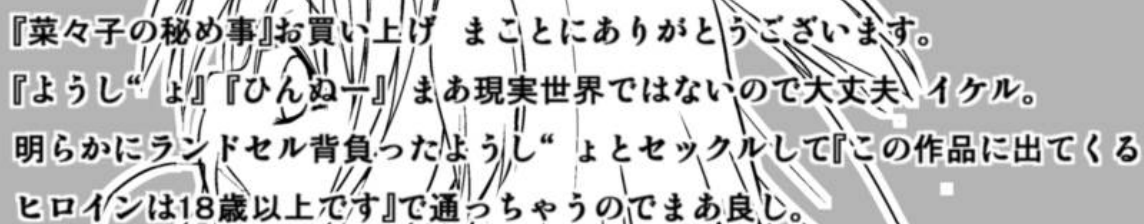 『菜々子の秘め事』お買い上げ　まことにありがとうございます。
『ようし“ょ』『ひんぬー』まあ現実世界ではないので大丈夫、イケル。
明らかにランドセル背負ったようし“ょとセックルして『この作品に出てくる
ヒロインは18歳以上です』で通っちゃうのでまあ良し。